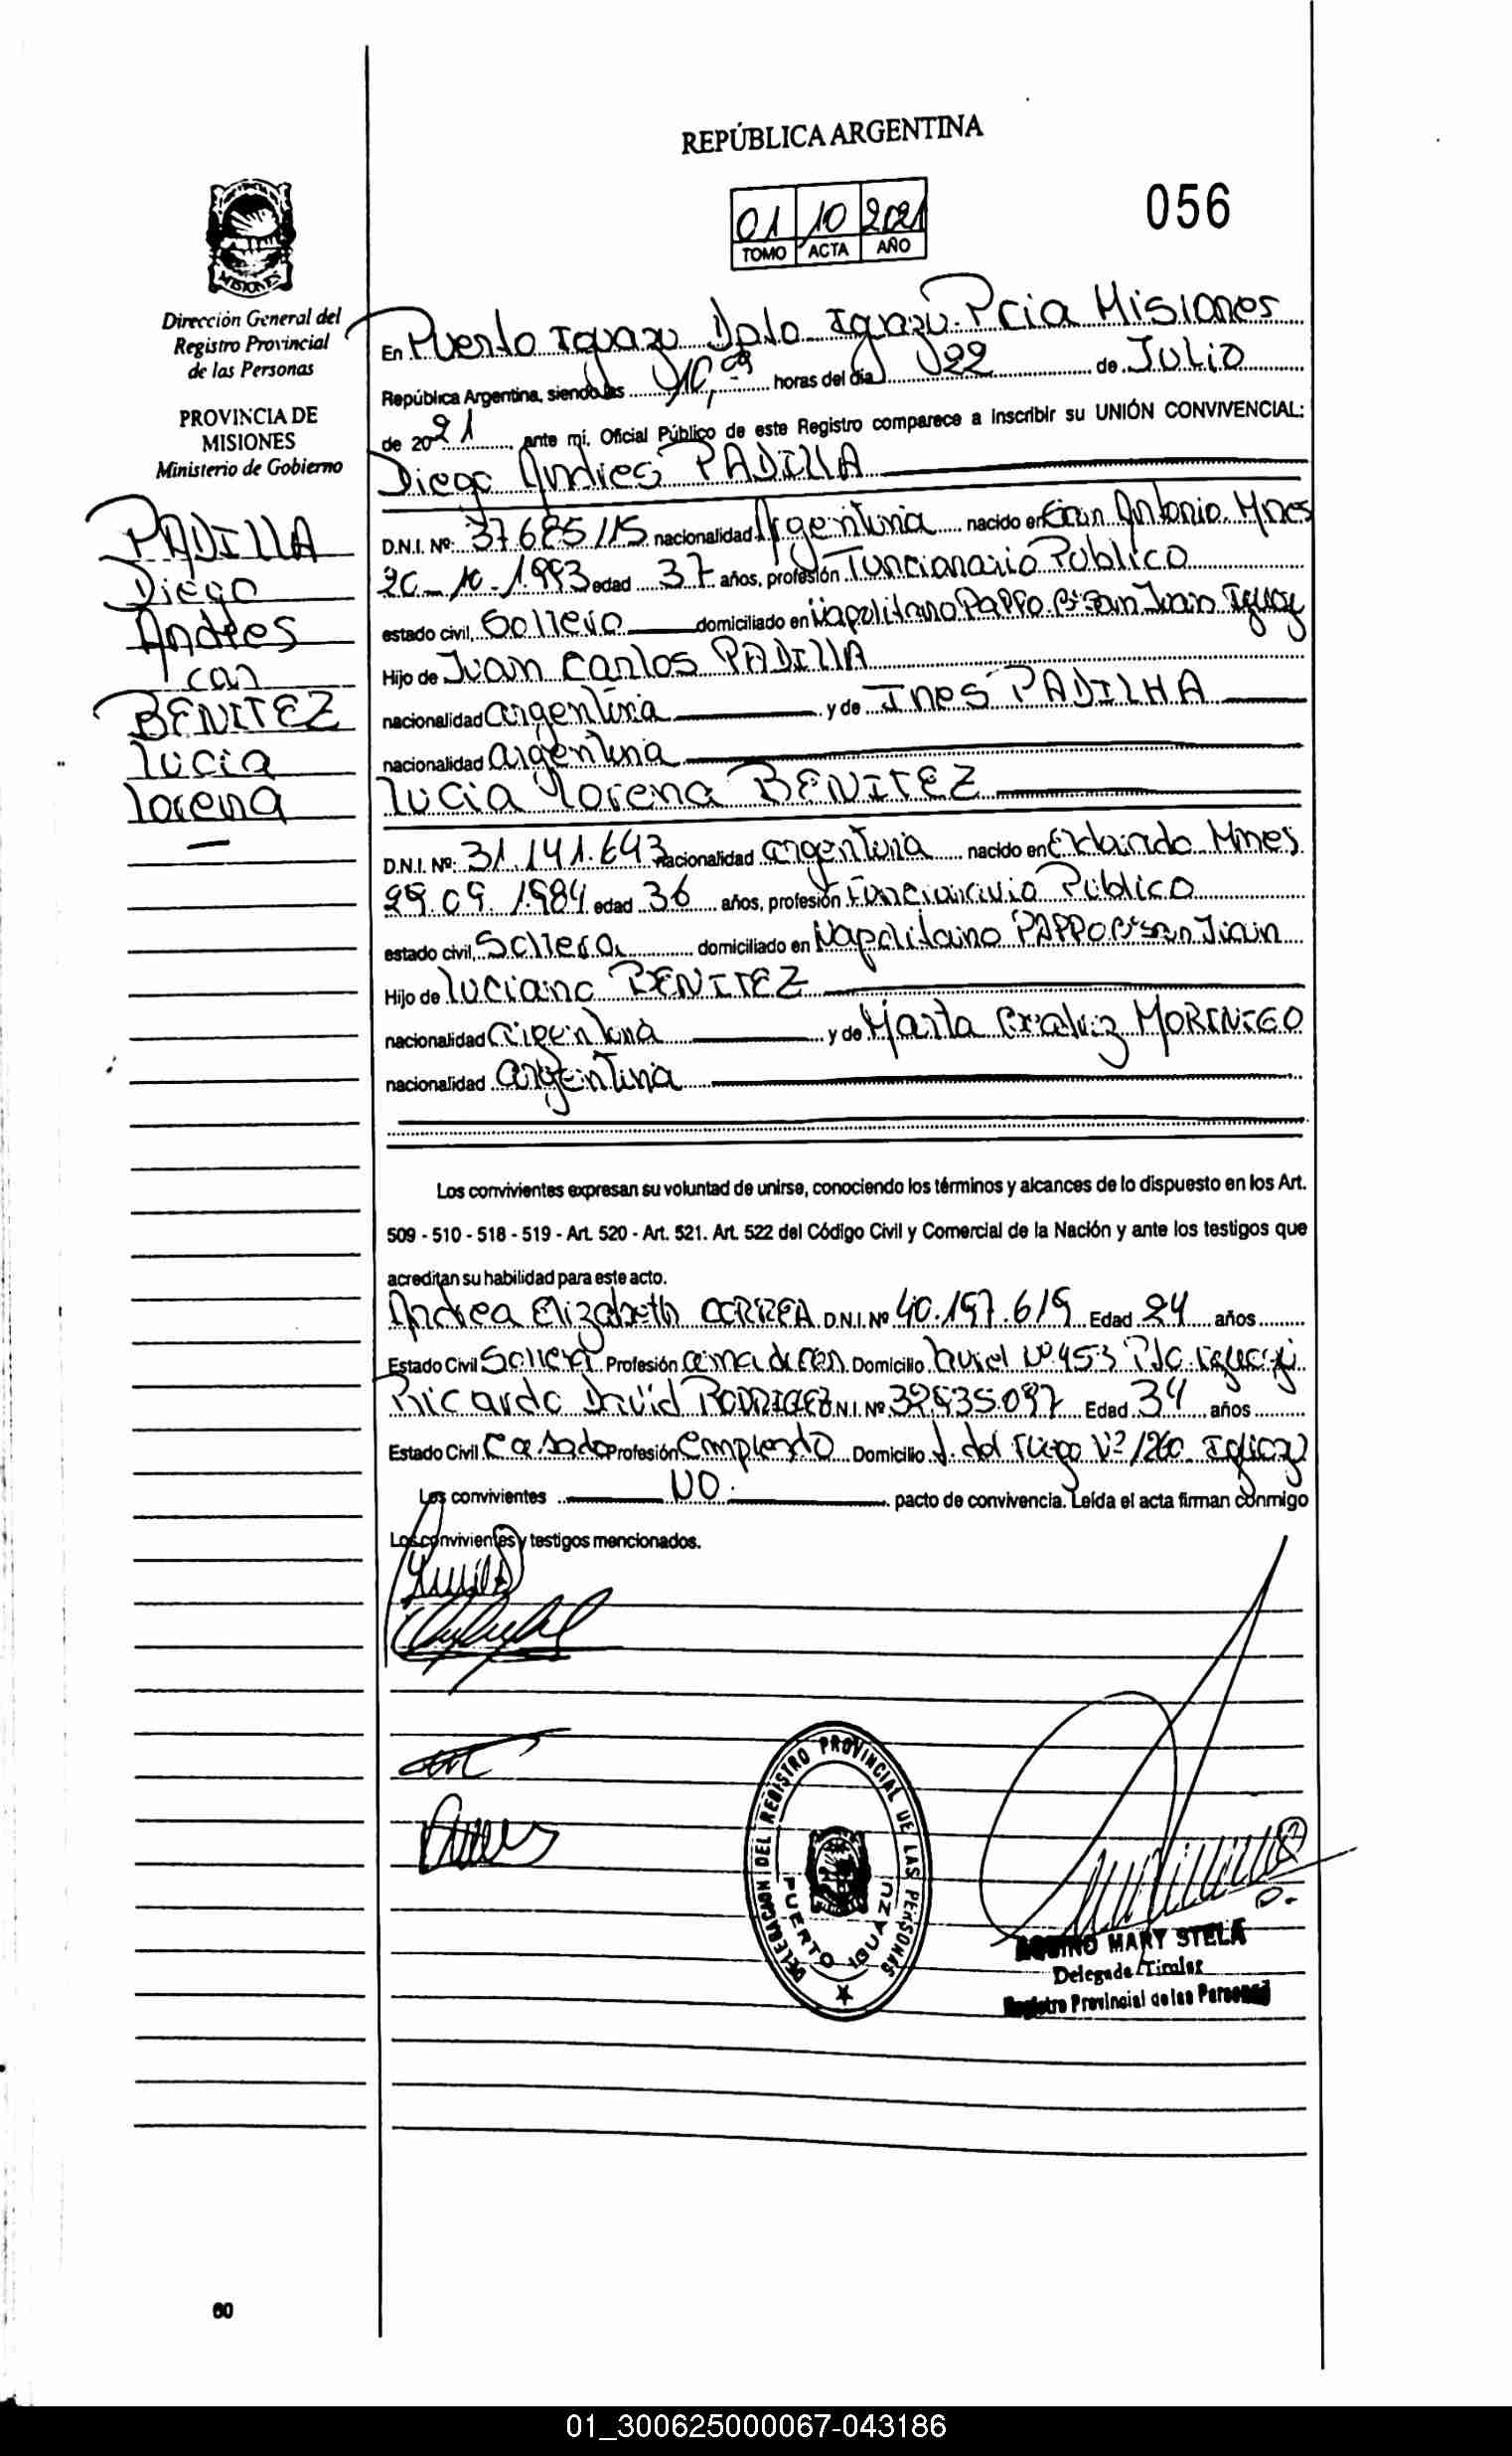 REPÚBLICA ARGENTINA
056
01 10 2021
TOMO ACTA AÑO
MISIONES
Dirección General del
Registro Provincial
de las Personas
PROVINCIA DE
MISIONES
Ministerio de Gobierno
PADILLA
Diego
Andres
con
BENITEZ
Lucia
Lorena
En Puerto Iguazu Dpto Iguazu. Pcia Misiones
República Argentina, siendo las 10, horas del día 22 de JULIO
de 2021 ante mí, Oficial Público de este Registro comparece a inscribir su UNIÓN CONVIVENCIAL:
Diego Andres PADILLA
D.N.I. Nº: 37.685.115 nacionalidad Argentina nacido en Gran Antonio. Mnes
10-1993 edad 37 años, profesión Funcionario Publico
estado civil, Soltero domiciliado en Napolitano Pappo Bº San Juan Iguazu
Hijo de Juan Carlos PADILLA
nacionalidad argentina y de INES PADILHA
nacionalidad argentina
Lucia Lorena BENITEZ
D.N.I. Nº: 31.141.643 nacionalidad argentina nacido en Eldorado Mnes.
29.09.1984 edad 36 años, profesión Funcionario Publico
estado civil, Soltera domiciliado en Napolitano PAPPO Bº San Juan
Hijo de Luciano BENITEZ
nacionalidad argentina y de Marta Beatriz MORINIGO
nacionalidad argentina
Los convivientes expresan su voluntad de unirse, conociendo los términos y alcances de lo dispuesto en los Art.
509 - 510 - 518 - 519 - Art. 520 - Art. 521. Art. 522 del Código Civil y Comercial de la Nación y ante los testigos que
acreditan su habilidad para este acto.
Andrea Elizabeth CORREA D.N.I. Nº 40.197.619 Edad 24 años
Estado Civil Soltera Profesión ama de casa Domicilio Nº 453 Pto Iguazu
Ricardo David RODRIGUEZ D.N.I. Nº 32.835.097 Edad 34 años
Estado Civil Casado Profesión Empleado Domicilio T. del Fuego Nº 1260 Iguazu
Los convivientes NO. pacto de convivencia. Leída el acta firman conmigo
Los convivientes y testigos mencionados.
DELEGACION DEL REGISTRO PROVINCIAL DE LAS PERSONAS
PUERTO IGUAZU
AQUINO MARY STELA
Delegada Titular
Registro Provincial de las Personas
60
01_300625000067-043186